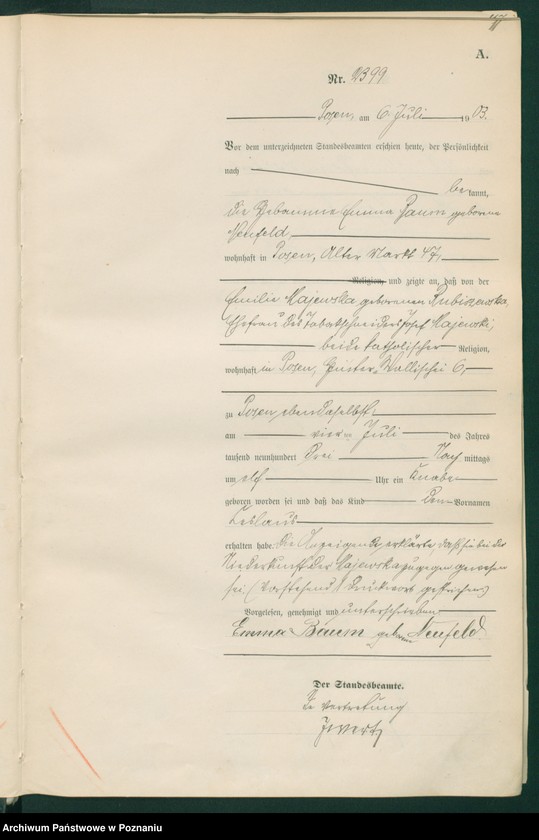 A.
Nr. 2399
Posen, am 6. Juli 1903.
Vor dem unterzeichneten Standesbeamten erschien heute, der Persönlichkeit
nach
bekannt,
die Hebamme Emma Baum geborene
Neufeld
wohnhaft in Posen, Alter Markt 47,
Religion, und zeigte an, daß von der
Emilie Majewska geborenen
Ehefrau des Tabakschneiders Josef Majewski,
beide katholischer Religion,
wohnhaft in Posen, Wallischei 6,
zu Posen, ebendaselbst,
am vier Juli des Jahres
tausend neunhundert drei Nachmittags
um elf Uhr ein Knabe
geboren worden sei und daß das Kind den Vornamen
erhalten habe. Die Anzeigende erklärte, daß sie bei der
Niederkunft der Majewska zugegen gewesen
sei. (Vorstehend 1 Druckwort gestrichen)
Vorgelesen, genehmigt und unterschrieben
Emma Baum geborene Neufeld.
Der Standesbeamte.
In Vertretung
Archiwum Państwowe w Poznaniu